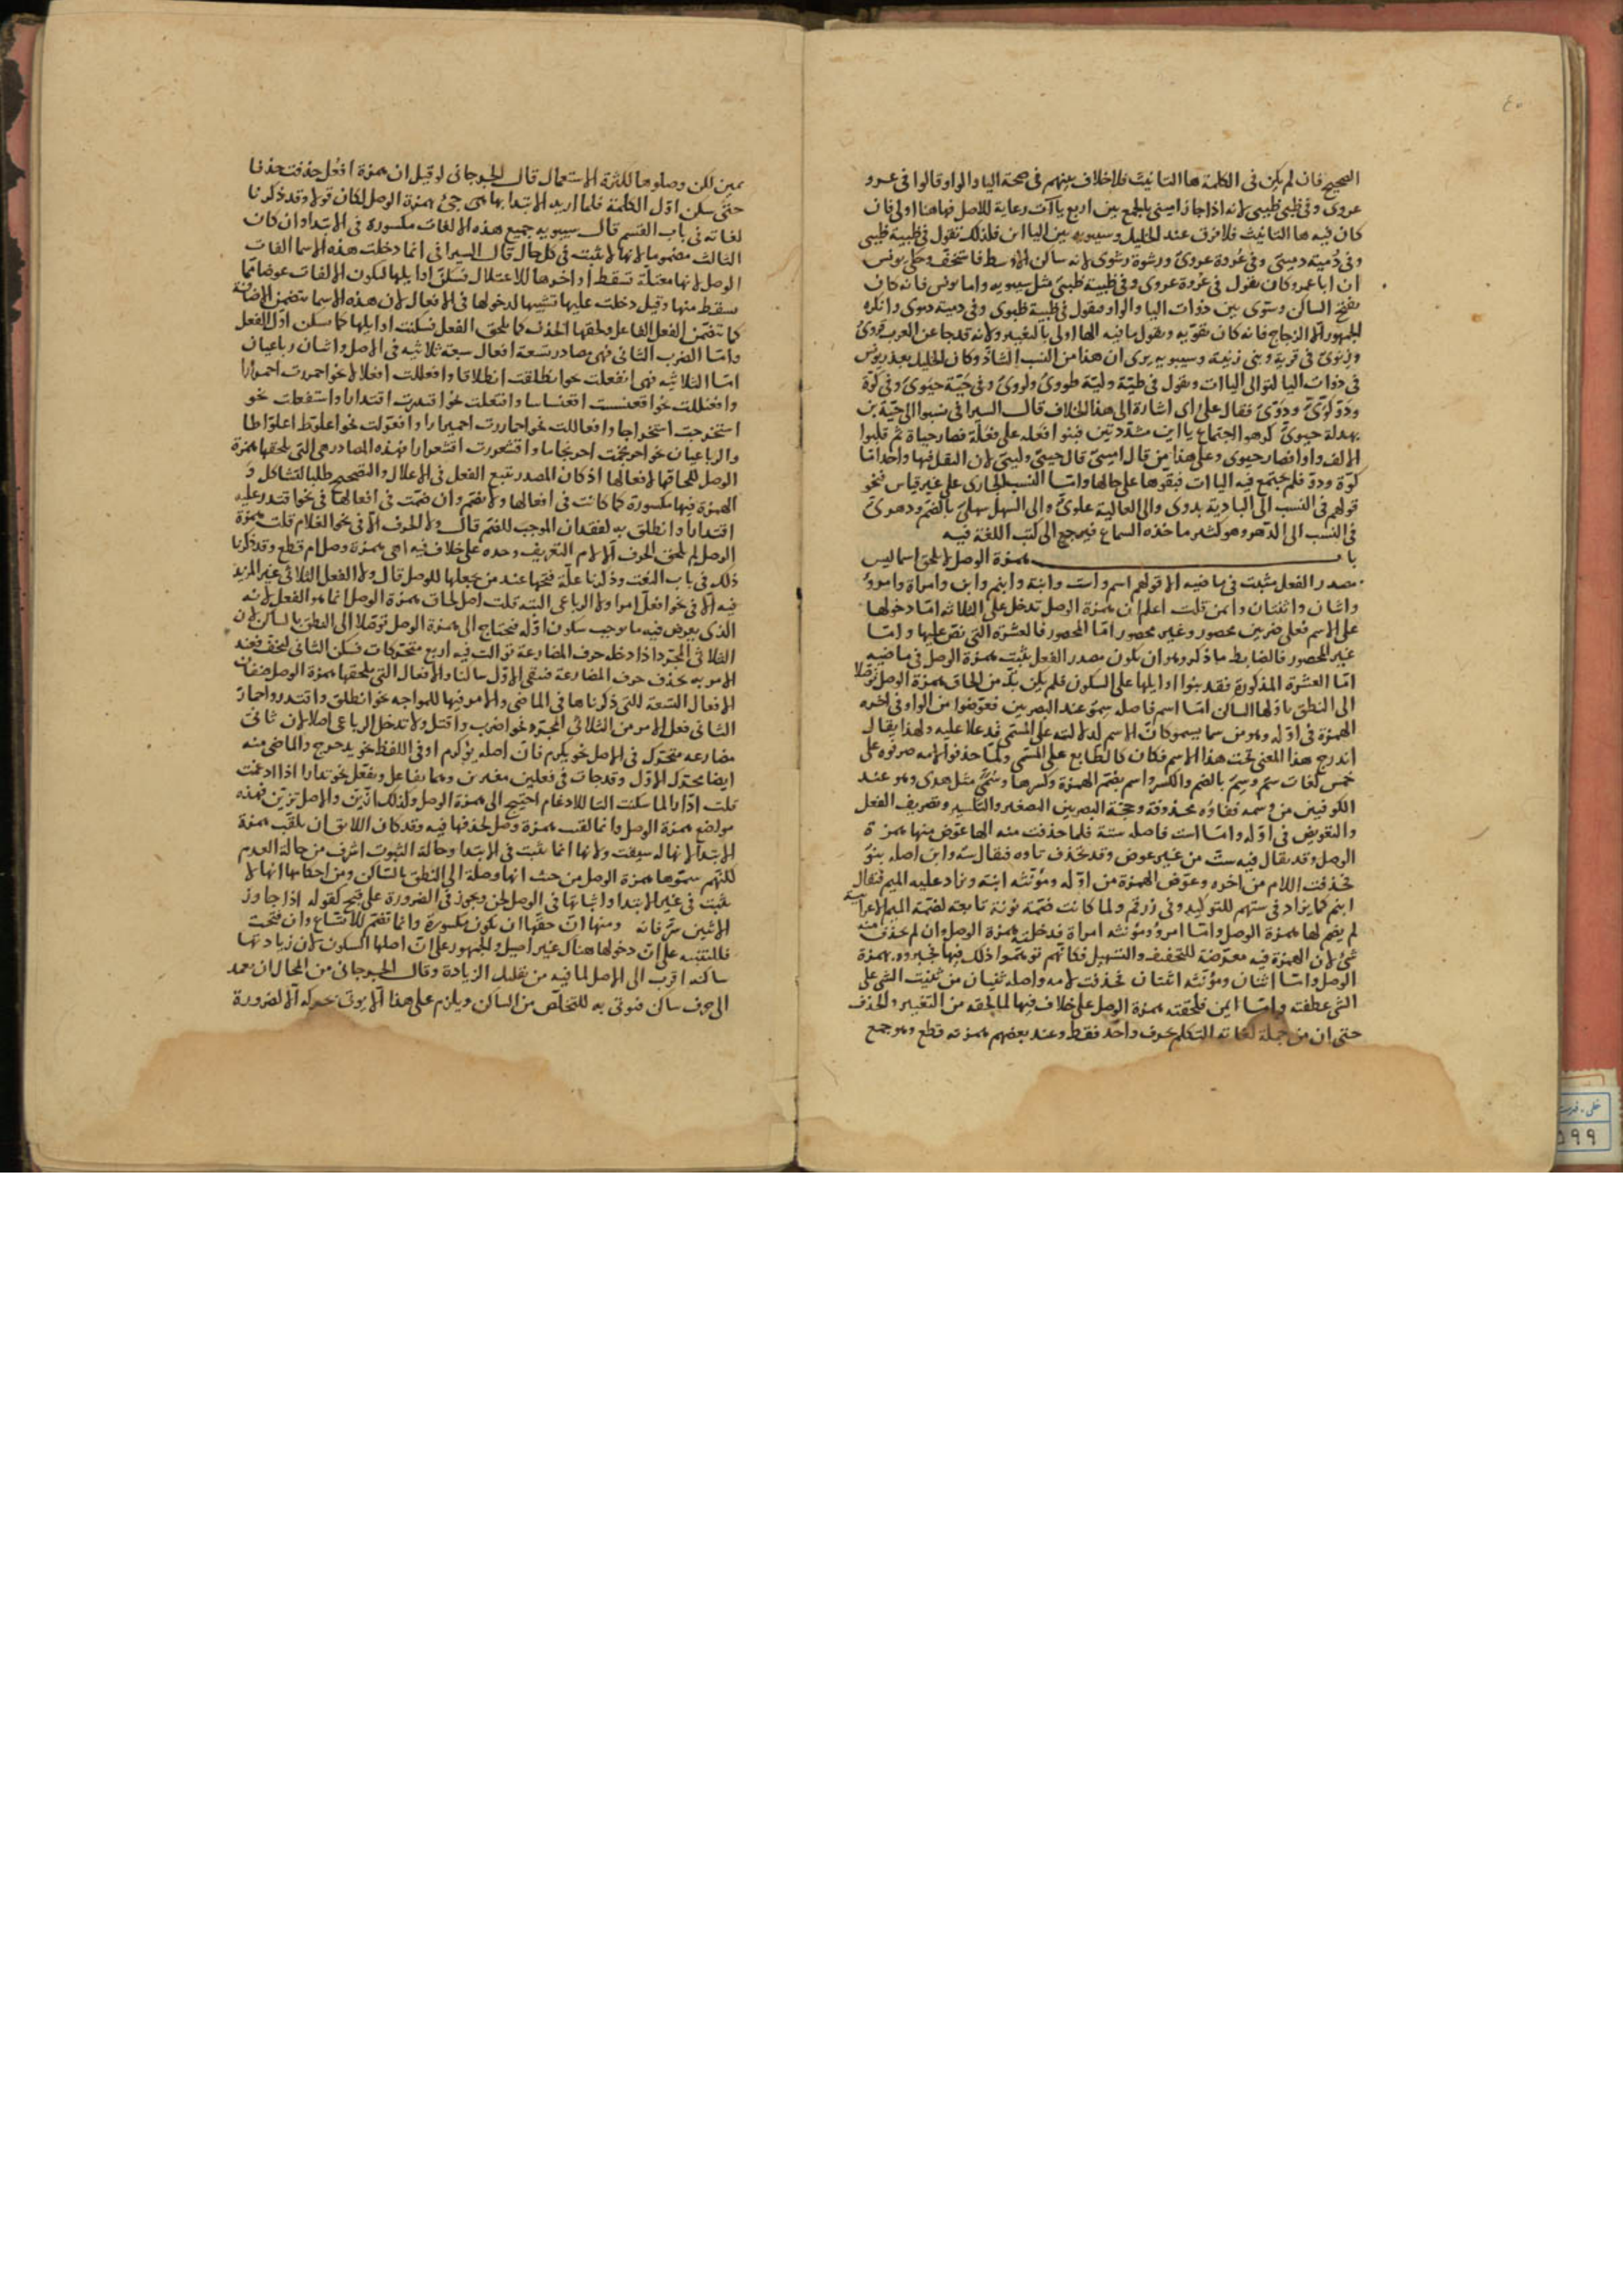 ٤٠
الصحيح فان لم يكن فى الكلمة ها التانيث فلا خلاف بينهم فى صحة اليا والواو قالوا فى عرو
عروى وفى ظبى ظبيى لانه اذا جاز اميىى بالجمع بين اربع ياآت رعاية للاصل فهاهنا اولى فان
كان فيه ها التانيث فلا فرق عند الخليل وسيبويه بين الياان فلذلك تقول فى ظبية ظبيى
وفى دمية دميىّ وفى عروة عروىّ ورشوة رشوى لانه ساكن الاوسط فاستخف وحكى يونس
ان ابا عمرو كان يقول فى عروة عروى وفى ظبية ظبيىّ مثل سيبويه واما يونس فانه كان
يفتح الساكن وسوّى بين ذوات اليا والواو فيقول فى ظبية ظبوى وفى دمية دموى وانكره
الجمهور الا الزجاج فانه كان يقويه ويقول ما فيه الها اولى بالتغيير ولانه قد جا عن العرب قروىّ
وزنوىّ فى قرية وبنى زنية وسيبويه يرى ان هذا من النسب الشاذ وكان الخليل يعذر يونس
فى ذوات اليا لتوالى الياات وتقول فى طيّة وليّة طووىّ ولووىّ وفى حيّة حيوىّ وفى كوّة
ودوّ كوّىّ ودوّىّ فقال على اى اشارة الى هذا الخلاف قال السيرافى نسبوا الى حيّة بن
بهدلة حيوىّ كرهوا اجتماع ياات مشددتين فبنوا فعله على فعلة فصار حياة ثم قلبوا
الالف واوا فصار حيوى وعلى هذا من قال اميىّ قال حييىّ ولييىّ لان الثقل فيها واحد اما
كوّة ودوّ فلم يجتمع فيه الياات فبقوها على حالها واما النسب الجارى على غير قياس فنحو
قولهم فى النسب الى البادية بدوى والى العالية علوىّ والى السهل سهلىّ بالضم ودهرىّ
فى النسب الى الدهر وهو كثير ماخذه السماع فيرجع الى كتب اللغة فيه
باب همزة الوصل لا تلحق اسما ليس
مصدر الفعل يثبت فى ماضيه الا قولهم اسم واست وابنة وابنم وابن وامراة وامروّ
واثنان واثنتان وايمن قلت اعلم ان همزة الوصل تدخل على الثلاثه اما دخولها
على الاسم فعلى ضربين محصور وغير محصور امّا المحصور فالعشرة التى نصّ عليها وامّا
غير المحصور فالضابط ما ذكر وهو ان يكون مصدر الفعل يثبت همزة الوصل فى ماضيه
امّا العشرة المذكورة فقد بنوا اوايلها على السكون فلم يكن بدّ من الحاق همزة الوصل توصّلا
الى النطق باولها الساكن امّا اسم فاصله سمو عند البصريين فعوّضوا من الواو فى اخره
الهمزة فى اوّله وهو من سما يسمو كانّ الاسم لدلالته على المسمى قد علا عليه ولهذا يقال
اندرج هذا المعنى تحت هذا الاسم فكان كالطابع على المسمى ولما حذفوا لامه صرفوه على
خمس لغات سُم وسِم بالضم والكسر واسم بضم الهمزة وكسرها وسُمًى مثل هدى وهو عند
الكوفيين من وسمه ففاؤه محذوفة وحجة البصريين التصغير والتكسير وتصريف الفعل
والتعويض فى اوّله وامّا است فاصله سته فلما حذفت منه الها عوّض منها همزة
الوصل وقد يقال فيه ستٌ من غير عوض وقد تحذف تاوه فيقال سه وابن اصله بنوٌ
فحذفت اللام من اخره وعوّض الهمزة من اوّله ومؤنثه ابنة وتزاد عليه الميم فيقال
ابنم كما يزاد فى ستهم للتوكيد وفى زرقم ولما كانت ضمّة نونه تابعة لضمّة الميم الاعرابية
لم يضم لها همزة الوصل وامّا امروٌ ومؤنثه امراة فدخلته همزة الوصل وان لم يحذف منه
شئ لان الهمزة فيه معرّضة للتخفيف والتسهيل فكانّهم توهّموا ذلك فيها فجبروه بهمزة
الوصل وامّا اثنان ومؤنثه اثنتان فحذفت لامه واصله ثنيان من ثنيت الشى على
الشى عطفته وامّا ايمن فلحقته همزة الوصل على خلاف فيها لما لحقه من التغيير والحذف
حتى ان من جملة لغاته التكلم بحرف واحد فقط وعند بعضهم همزته قطع وهو جمع
يمين لكن وصلوها لكثرة الاستعمال قال الجرجانى لو قيل ان همزة افعُل حذفت حذفا
حتّى سكن اوّل الكلمة فلما اريد الابتدا بها جئ بهمزة الوصل لكان قولا وقد ذكرنا
لغاته فى باب القسم قال سيبويه جميع هذه الالفات مكسورة فى الابتدا وان كان
الثالث مضموما لانها لا تثبت فى كل حال قال السيرافى انما دخلت هذه الاسما الفات
الوصل لانها معتلّة تسقط اواخرها للاعتلال فسكن اوايلها ليكون الالفات عوضا مما
سقط منها وقيل دخلت عليها تشبيها لدخولها فى الافعال لان هذه الاسما تتضمن الاضافة
كما تتضمّن الفعل الفاعل ولحقها الحذف كما لحق الفعل فسكنت اوايلها كما سكن اوّل الفعل
وامّا الضرب الثانى فهى مصادر تسعة افعال سبعة ثلاثيه فى الاصل واثنان رباعيان
امّا الثلاثيه فهى انفعلت نحو انطلقت انطلاقا وافعللت افعلالا نحو احمررت احمرارا
وافعنللت نحو اقعنسست اقعنساسا وافتعلت نحو اقتدرت اقتدارا واستفعلت نحو
استخرجت استخراجا وافعاللت نحو احماررت احميرارا وافعوّلت نحو اعلوّط اعلوّاطا
والرباعيان نحو احرنجمت احرنجاما واقشعررت اقشعرارا فهذه المصادر هى التى تلحقها همزة
الوصل للحاقها لافعالها اذ كان المصدر يتبع الفعل فى الاعلال والتصحيح طلبا للتشاكل و
الهمزة فيها مكسورة كما كانت فى افعالها ولا تضم وان ضمّت فى افعالها فى نحو اقتدر عليه
اقتدارا وانطلق به لفقدان الموجب للضم قال ولا الحرف الا فى نحو الغلام قلت همزة
الوصل لم تلحق الحرف الا لام التعريف وحده على خلاف فيه اهى همزة وصل ام قطع وقد ذكرنا
ذلك فى باب النعت وذكرنا علّة فتحها عند من جعلها للوصل قال ولا الفعل الثلاثى غير المزيد
فيه الا فى نحو افعل امرا ولا الرباعى البته قلت اصل لحاق همزة الوصل انما هو الفعل لانه
الذى يعرض فيه ما يوجب سكون اوّله فيحتاج الى همزة الوصل توصّلا الى النطق بالساكن لان
الثلاثى المجرّد اذا دخله حرف المضارعة توالت فيه اربع متحركات فسكن الثانى ليخف فعند
الامر به يحذف حرف المضارعة فبقى الاوّل ساكنا والافعال التى يلحقها همزة الوصل
الافعال التسعة التى ذكرناها فى الماضى والامر فيها للمواجه نحو انطلق واقتدر واحمارّ
الثانى فعل الامر من الثلاثى المجرّد نحو اضرب واقتل ولا تدخل الرباعى اصلا لان ثانى
مضارعه متحرك فى الاصل نحو يكرم فان اصله يؤكرم او فى اللفظ نحو يدحرج والماضى منه
ايضا محرّك الاوّل وقد جات فى فعلين مغيرين وهما تفاعل وتفعّل نحو تدارا اذا ادغمت
قلت ادّارا لما سكنت التا للادغام احتيج الى همزة الوصل وكذلك ازّيّن والاصل تزيّن فهذه
مواضع همزة الوصل وانما لقبت همزة وصل لحذفها فيه وقد كان اللائق ان يلقّب همزة
الابتدا لانها له سيقت ولانها انما تثبت فى الابتدا وحالة الثبوت اشرف من حالة العدم
لكنّهم سمّوها همزة الوصل من حيث انها وصلة الى النطق بالسّاكن ومن احكامها انها لا
تثبت فى غير الابتدا واثباتها فى الوصل لحن ويجوز فى الضرورة على قبح كقوله اذا جاوز
الاثنين سرٌّ فانه ومنها انّ حقها ان يكون مكسورة وانما تضم للاتّباع وان فتحت
فللتنبيه على انّ دخولها هناك غير اصيل والجمهور على انّ اصلها السكون لان زيادتها
ساكنه اقرب الى الاصل لما فيه من تقليل الزيادة وقال الجرجانى من المحال ان نعمد
الى حرف ساكن فنوتى به للتخلّص من الساكن ويلزم على هذا الا يوتى بحركة الا لضرورة
خطى - فهرست
٥٩٩